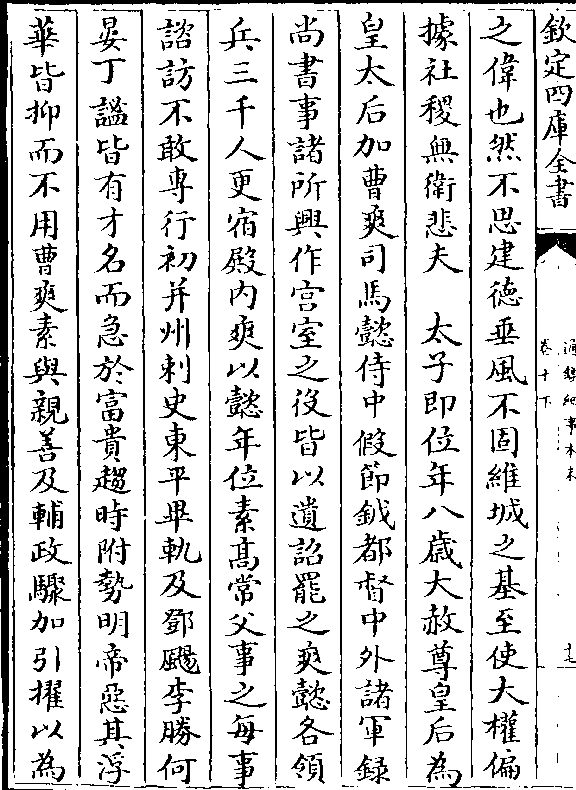 欽定四庫全書
通鑑紀事本末
卷十下
十七
之偉也然不思建德垂風不固維城之基至使大權偏
據社稷無衛悲夫　太子即位年八歳大赦尊皇后為
皇太后加曹爽司馬懿侍中假節鉞都督中外諸軍録
尚書事諸所興作宫室之役皆以遺詔罷之爽懿各領
兵三千人更宿殿内爽以懿年位素髙常父事之每事
諮訪不敢専行初并州刺史東平畢軌及鄧颺李勝何
晏丁謐皆有才名而急於富貴趨時附勢明帝惡其浮
華皆抑而不用曹爽素與親善及輔政驟加引擢以為